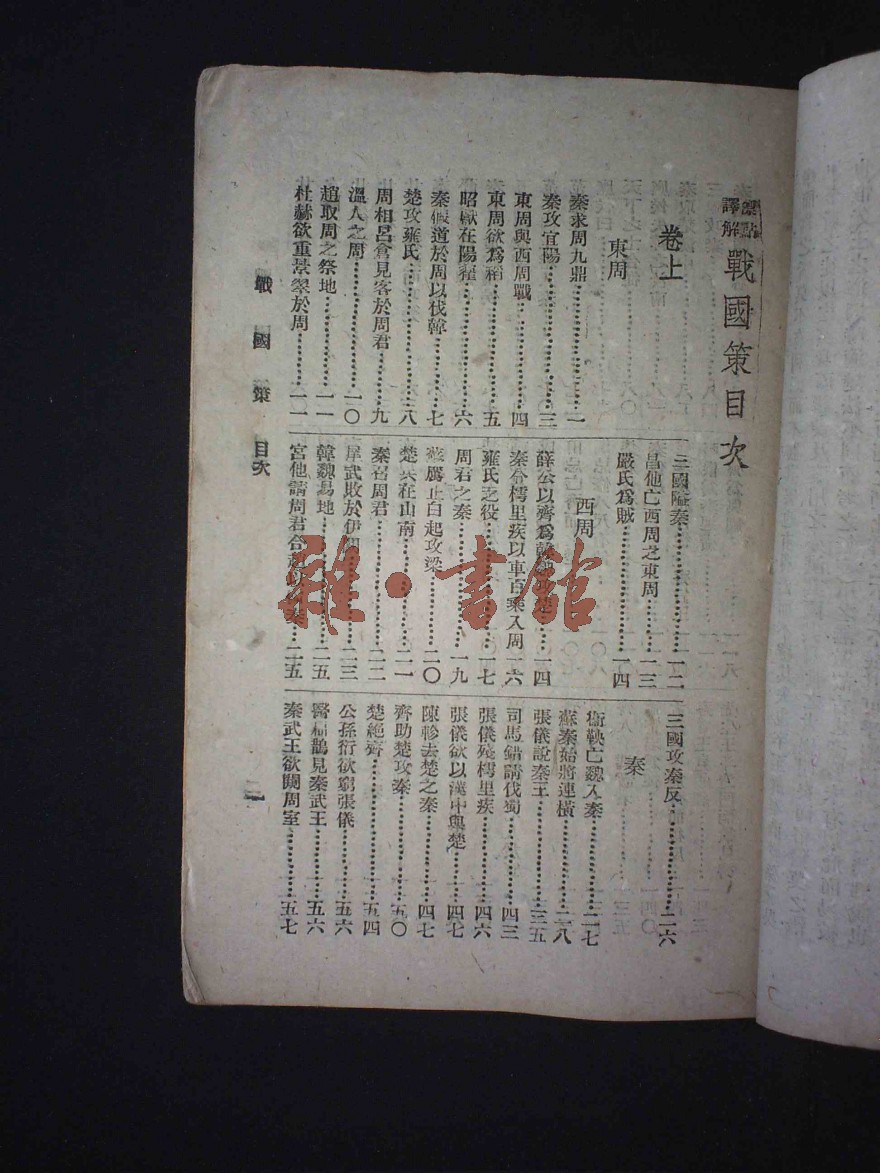 標點譯解 戰國策目次
卷上
東周
秦求周九鼎…………一
秦攻宜陽…………三
東周與西周戰…………四
東周欲爲稻…………五
昭獻在陽翟…………六
秦假道於周以伐韓…………七
楚攻雍氏…………八
周相呂倉見客於周君…………九
溫人之周…………一〇
趙取周之祭地…………一一
杜赫欲重景翠於周…………一一
三國隘秦…………一二
昌他亡西周之東周…………一三
嚴氏爲賊…………一四
西周
薛公以齊爲韓魏攻楚…………一四
秦令樗里疾以車百乘入周 一六
雍氏之役…………一七
周君之秦…………一九
蘇厲止白起攻梁…………二〇
楚兵在山南…………二一
秦召周君…………二二
犀武敗於伊闕…………二三
韓魏易地…………二五
宮他謂周君合 秦…二五
三國攻秦反…………二六
秦
衞鞅亡魏入秦…………二七
蘇秦始將連橫…………二八
張儀說秦王…………三五
司馬錯請伐蜀…………四三
張儀殘樗里疾…………四六
張儀欲以漢中與楚…………四七
陳軫去楚之秦…………四七
齊助楚攻秦…………五〇
楚絕齊…………五四
公孫衍欲窮張儀…………五六
醫扁鵲見秦武王…………五六
秦武王欲闚周室…………五七
戰國策 目次
雅·書館